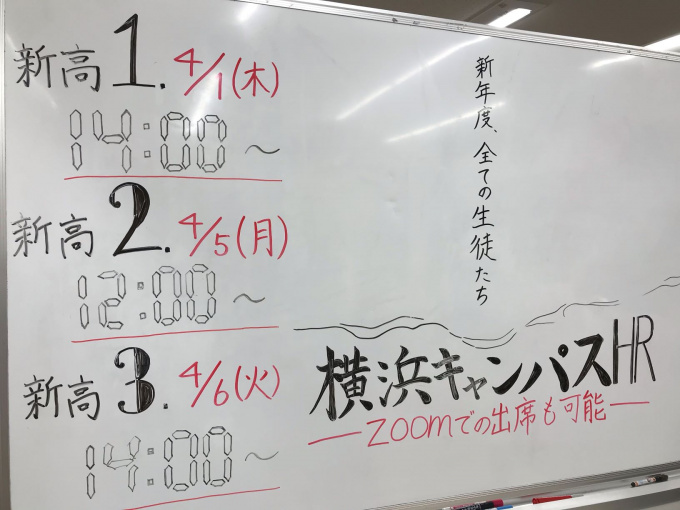 新高1. 4/1(木)
14:00〜
新高2. 4/5(月)
12:00〜
新高3. 4/6(火)
14:00〜
新年度、全ての生徒たち
横浜キャンパスHR
ーZoomでの出席も可能ー